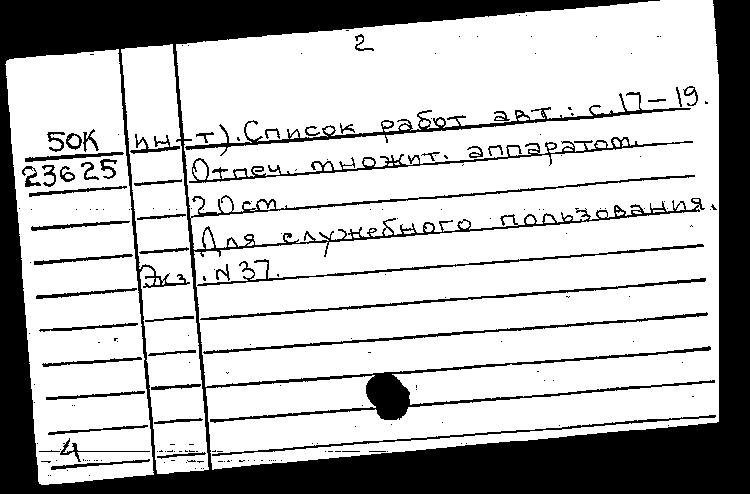 2
50К
23625
ин-т). Список работ авт.: с. 17-19.
Отпеч. множит. аппаратом.
20 см.
Для служебного пользования.
Экз. N 37.
4